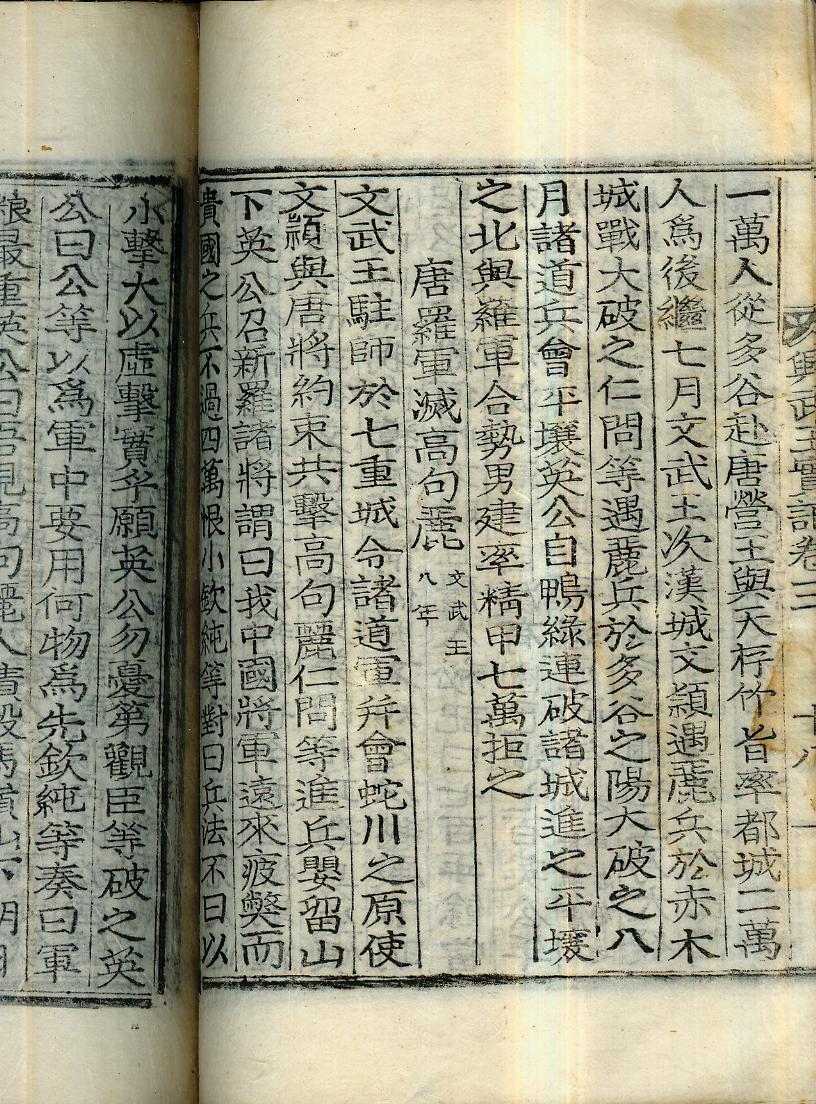 興武王實記卷三 十八
一萬人從多谷赴唐營王與天存竹旨率都城二萬
人爲後繼七月文武王次漢城文穎遇麗兵於赤木
城戰大破之仁問等遇麗兵於多谷之陽大破之八
月諸道兵會平壤英公自鴨綠連破諸城進之平壤
之北與羅軍合勢男建率精甲七萬拒之
唐羅軍滅高句麗 文武王八年
文武王駐師於七重城令諸道軍并會蛇川之原使
文穎與唐將約束共擊高句麗仁問等進兵嬰留山
下英公召新羅諸將謂曰我中國將軍遠來疲獘而
貴國之兵不過四萬恨小欽純等對曰兵法不曰以
小擊大以虛擊實乎願英公勿憂第觀臣等破之英
公曰公等以爲軍中要用何物爲先欽純等奏曰軍
粮最重英公曰吾見高句麗人積穀馬首山下明日